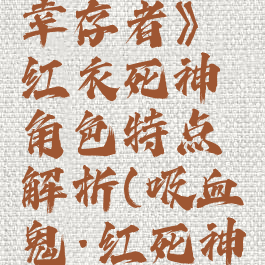 幸存者》
红衣死神
角色特点
解析(吸血
鬼·红死神